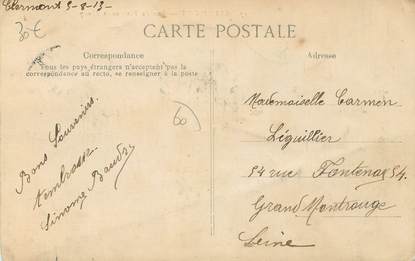 Clermont 5-8-13-
30€
CARTE POSTALE
Correspondance
Tous les pays étrangers n'acceptent pas la
correspondance au recto, se renseigner à la poste
60
Bons Souvenirs.
t'embrasse
Adresse
Mademoiselle Carmen
Léguillier
54 rue Fontenay 54.
Grand Montrouge
Seine